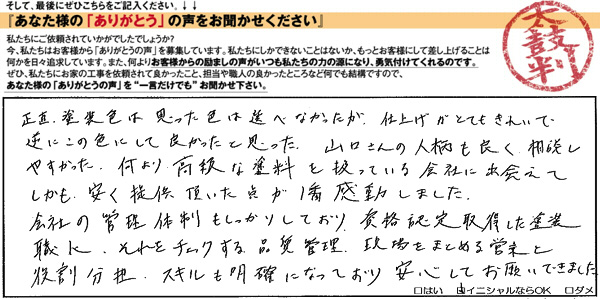 そして、最後にぜひこちらをご記入ください。↓↓↓
『あなた様の「ありがとう」の声をお聞かせください』
私たちにご依頼されていかがでしたでしょうか?
今、私たちはお客様から「ありがとうの声」を募集しています。私たちにしかできないことはないか、もっとお客様にして差し上げることは
何かを日々追求しています。また、何よりお客様からの励ましの声がいつも私たちの力の源になり、勇気付けてくれるのです。
ぜひ、私たちにお家の工事を依頼されて良かったこと、担当や職人の良かったところなど何でも結構ですので、
あなた様の「ありがとうの声」を“一言だけでも”お聞かせ下さい。
太鼓判
正直、塗装色は思った色は選べなかったが、仕上げがとてもきれいで
逆にこの色にして良かったと思った。山口さんの人柄も良く、相談し
やすかった。何より高級な塗料を扱っている会社に出会えて
しかも、安く提供頂いた点が1番感動しました。
会社の管理体制もしっかりしており、資格認定取得した塗装
職人、それをチェックする品質管理、現場をまとめる営業と
役割分担、スキルも明確になっており安心してお願いできました。
□はい ☑イニシャルならOK □ダメ